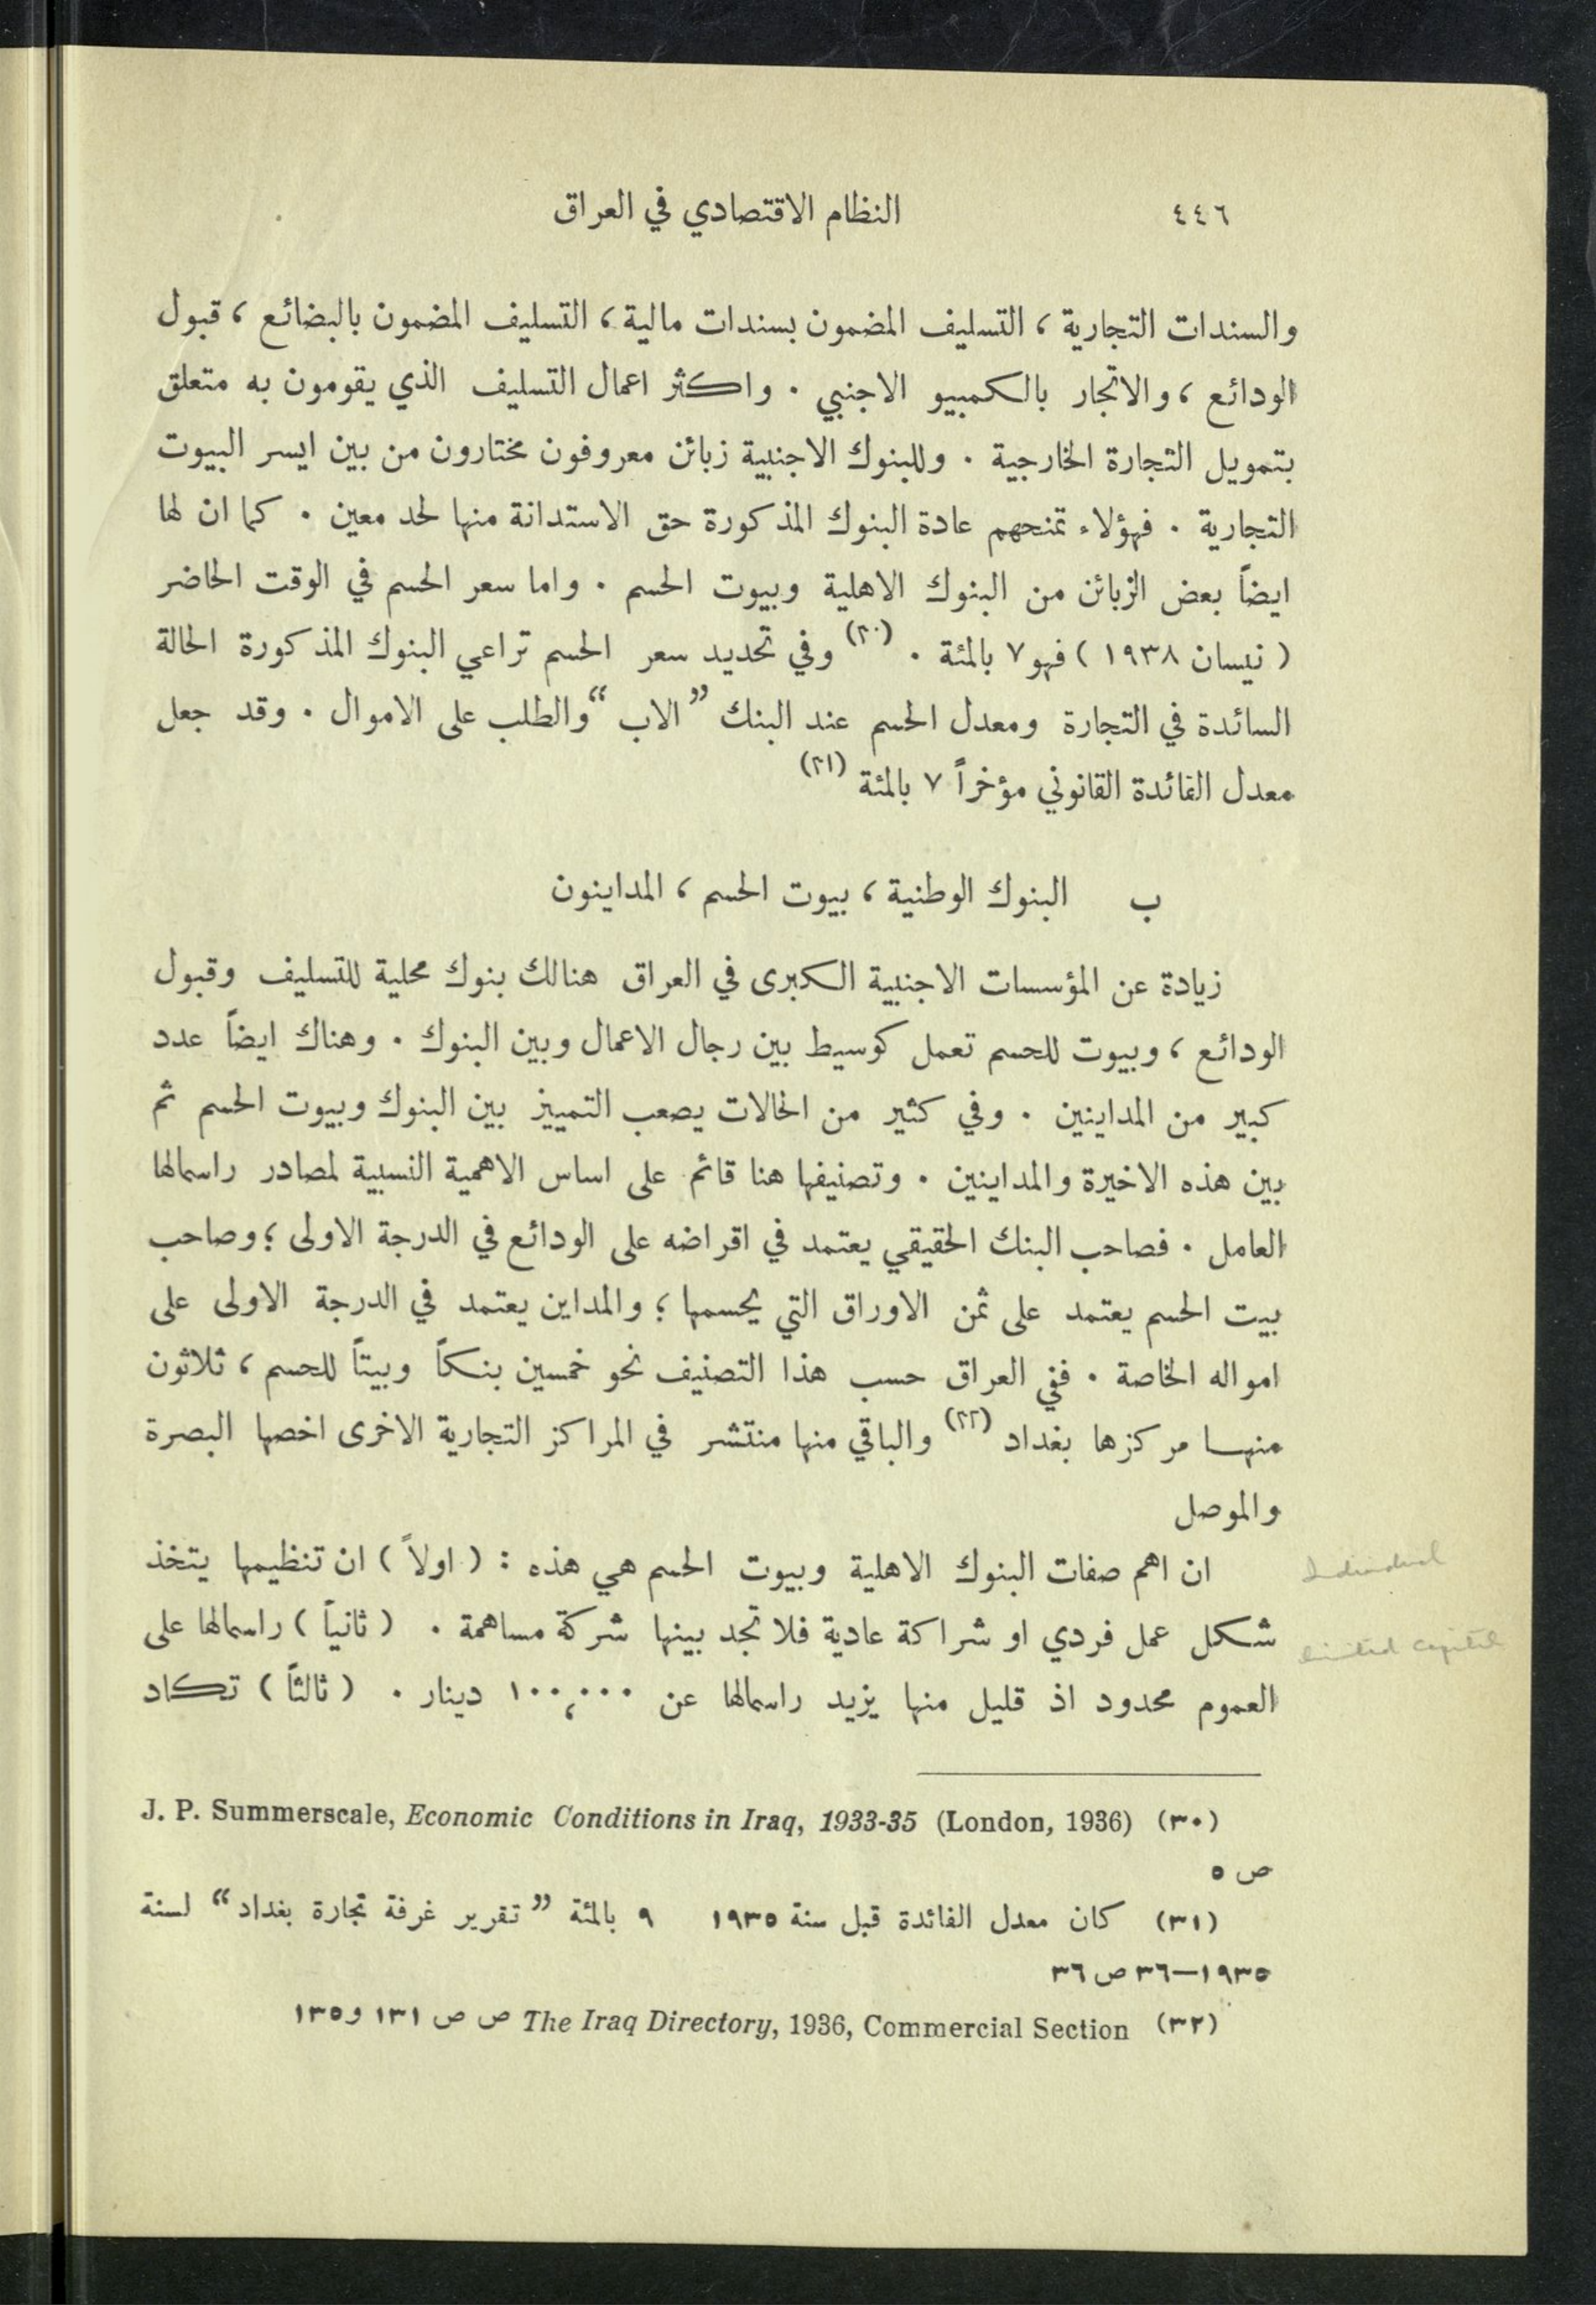 ٤٤٦ النظام الاقتصادي في العراق
والسندات التجارية ، التسليف المضمون بسندات مالية ، التسليف المضمون بالبضائع ، قبول
الودائع ، والاتجار بالكمبيو الاجنبي . واكثر اعمال التسليف الذي يقومون به متعلق
بتمويل التجارة الخارجية . وللبنوك الاجنبية زبائن معروفون مختارون من بين ايسر البيوت
التجارية . فهؤلاء تمنحهم عادة البنوك المذكورة حق الاستدانة منها لحد معين . كما ان لها
ايضاً بعض الزبائن من البنوك الاهلية وبيوت الحسم . واما سعر الحسم في الوقت الحاضر
( نيسان ١٩٣٨ ) فهو ٧ بالمئة . (٣٠) وفي تحديد سعر الحسم تراعي البنوك المذكورة الحالة
السائدة في التجارة ومعدل الحسم عند البنك ”الاب“ والطلب على الاموال . وقد جعل
معدل الفائدة القانوني مؤخراً ٧ بالمئة (٣١)
ب البنوك الوطنية ، بيوت الحسم ، المداينون
زيادة عن المؤسسات الاجنبية الكبرى في العراق هنالك بنوك محلية للتسليف وقبول
الودائع ، وبيوت للحسم تعمل كوسيط بين رجال الاعمال وبين البنوك . وهناك ايضاً عدد
كبير من المداينين . وفي كثير من الحالات يصعب التمييز بين البنوك وبيوت الحسم ثم
بين هذه الاخيرة والمداينين . وتصنيفها هنا قائم على اساس الاهمية النسبية لمصادر راسمالها
العامل . فصاحب البنك الحقيقي يعتمد في اقراضه على الودائع في الدرجة الاولى ؛ وصاحب
بيت الحسم يعتمد على ثمن الاوراق التي يحسمها ؛ والمداين يعتمد في الدرجة الاولى على
امواله الخاصة . ففي العراق حسب هذا التصنيف نحو خمسين بنكاً وبيتاً للحسم ، ثلاثون
منها مركزها بغداد (٣٢) والباقي منها منتشر في المراكز التجارية الاخرى اخصها البصرة
والموصل
ان اهم صفات البنوك الاهلية وبيوت الحسم هي هذه : ( اولاً ) ان تنظيمها يتخذ
Individual
شكل عمل فردي او شراكة عادية فلا تجد بينها شركة مساهمة . ( ثانياً ) راسمالها على
limited capital
العموم محدود اذ قليل منها يزيد راسمالها عن ١٠٠،٠٠٠ دينار . ( ثالثاً ) تكاد
(٣٠) J. P. Summerscale, Economic Conditions in Iraq, 1933-35 (London, 1936)
ص ٥
(٣١) كان معدل الفائدة قبل سنة ١٩٣٥ ٩ بالمئة ”تقرير غرفة تجارة بغداد“ لسنة
١٩٣٥—٣٦ ص ٣٦
(٣٢) The Iraq Directory, 1936, Commercial Section ص ص ١٣١ و ١٣٥